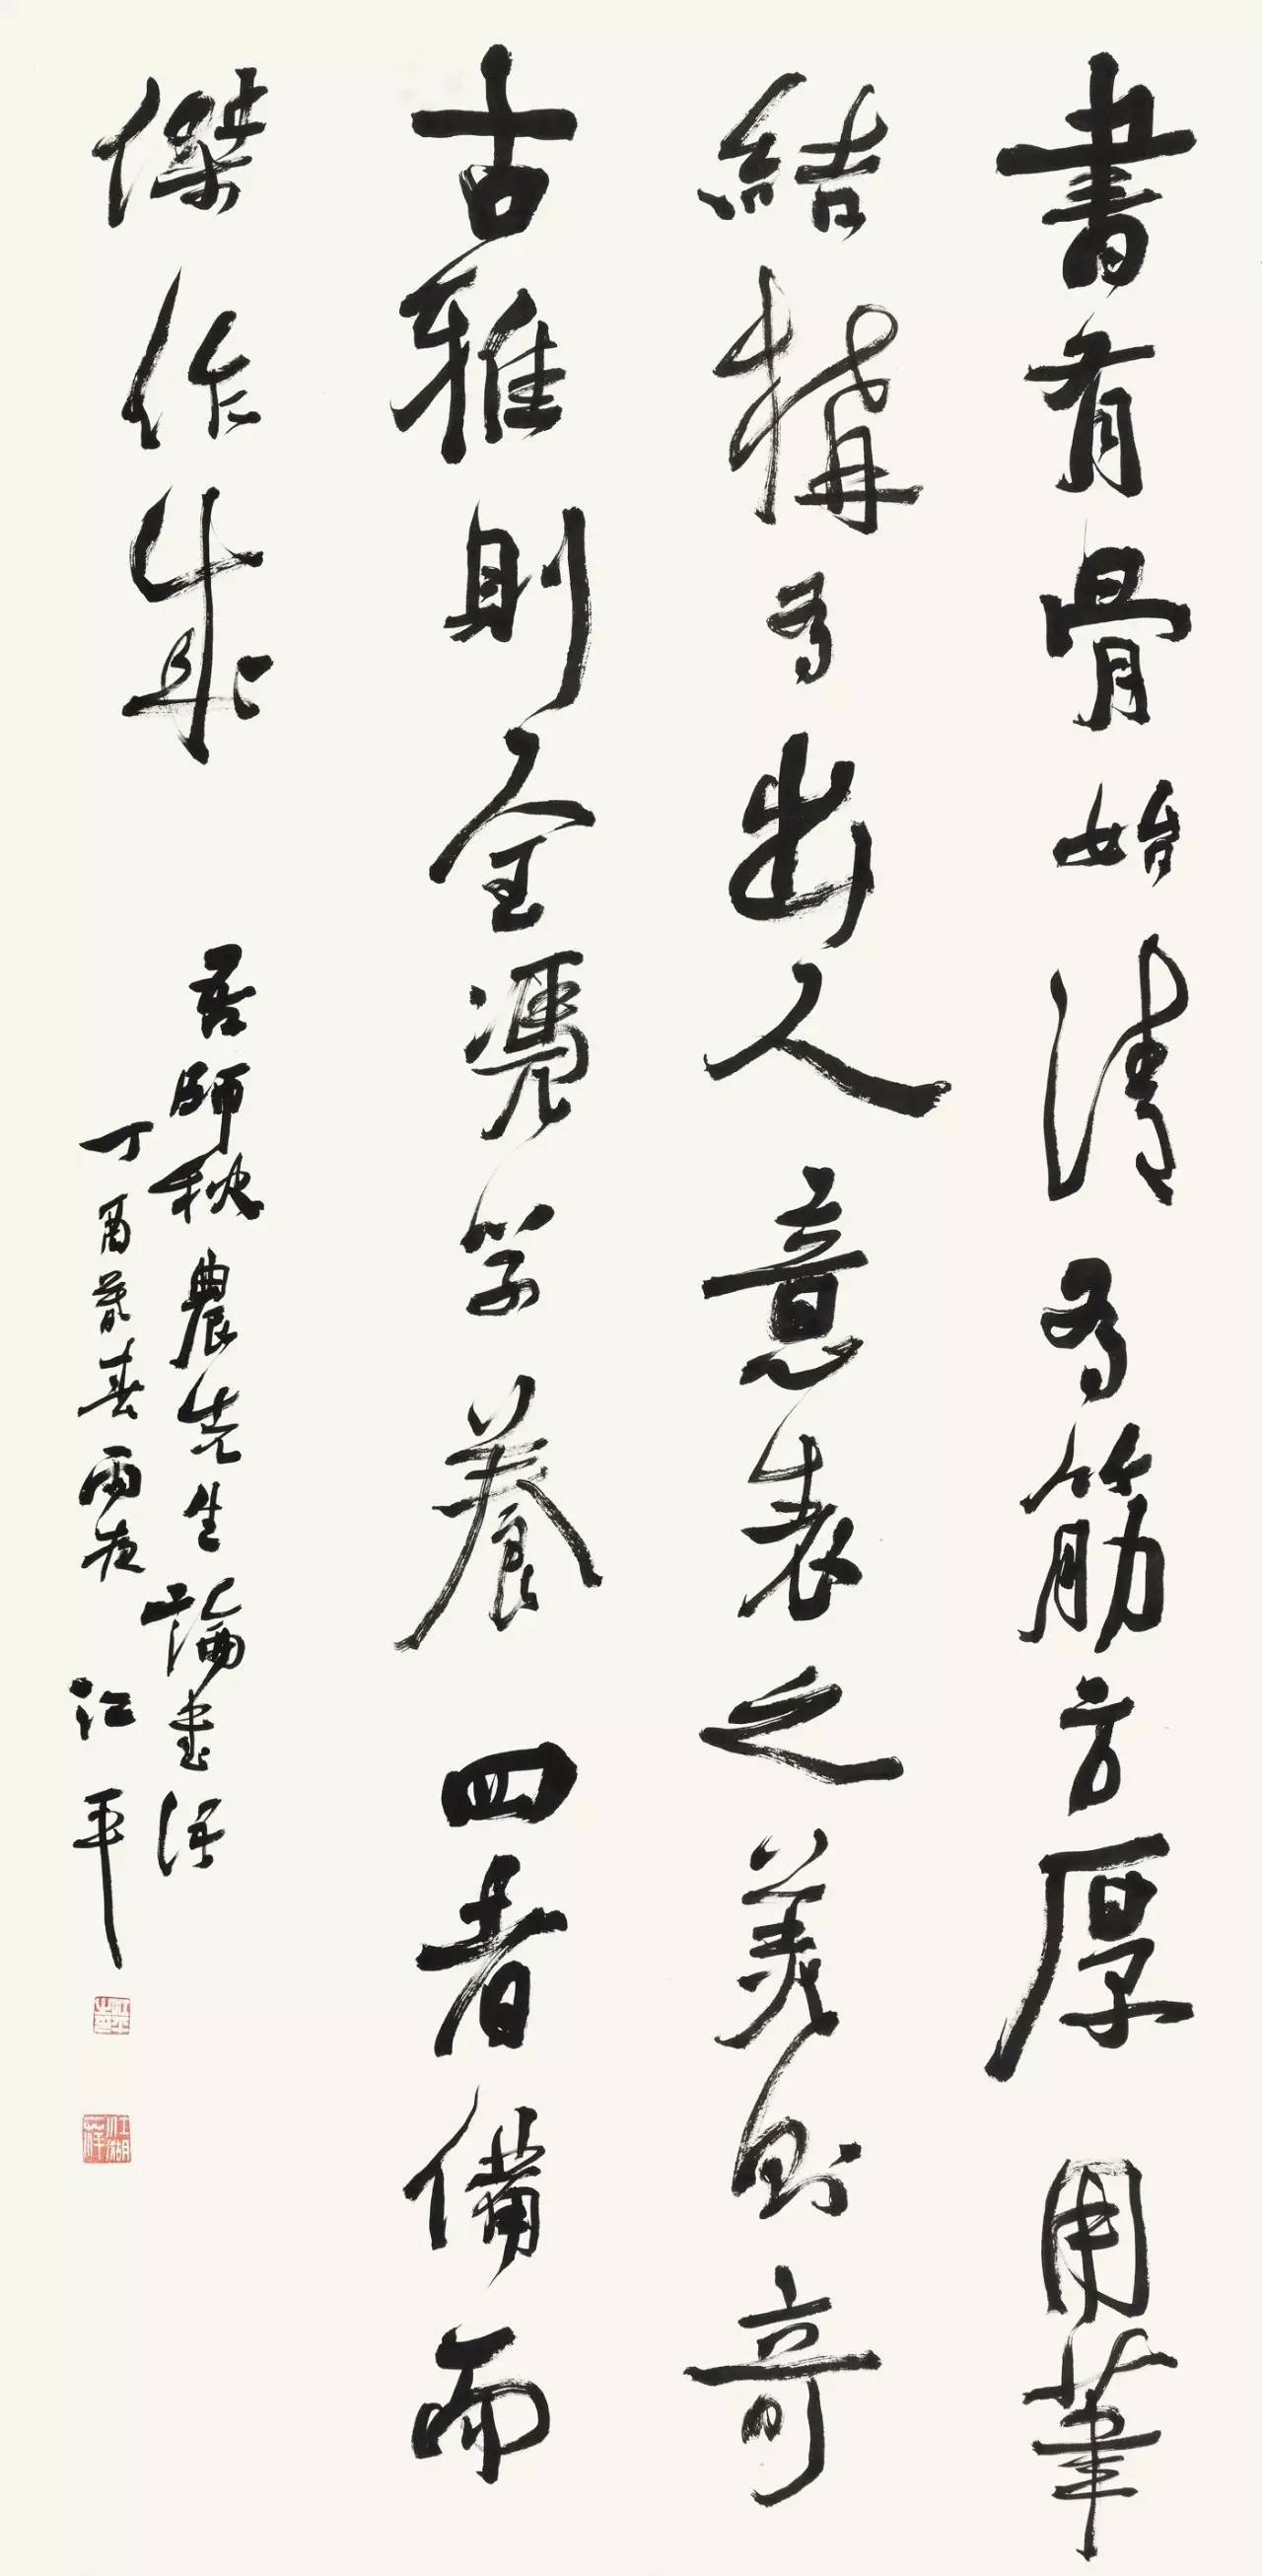 書有骨始清有筋方厚用筆
結構有出人意表之美則奇
古雅則全憑學養四者備而
傑作成
吾師秋農先生論書語
丁酉暮春雨夜江平